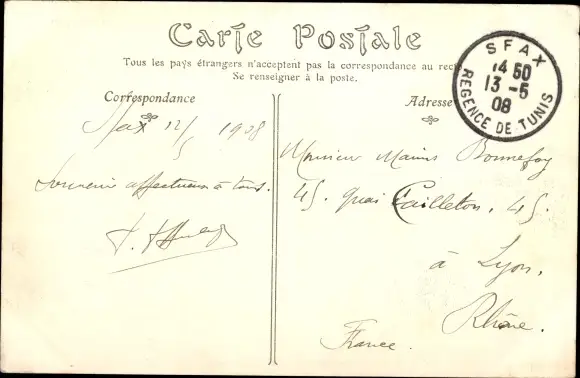 Carte Postale
Tous les pays étrangers n'acceptent pas la correspondance au recto
Se renseigner à la poste.
SFAX
14 50
13 -5
08
REGENCE DE TUNIS
Correspondance
Sfax 12/5 1908
Souvenir affectueux à tous.
Adresse
Monsieur Bonnefoy
45. quai Gailleton. 45.
à Lyon.
Rhône.
France.